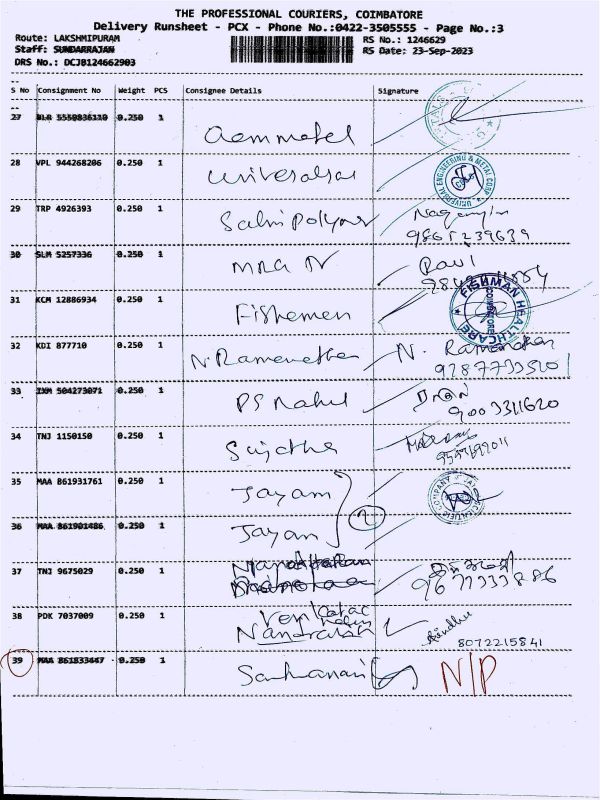 THE PROFESSIONAL COURIERS, COIMBATORE
Delivery Runsheet - PCX - Phone No.:0422-3505555 - Page No.:3
Route: LAKSHMIPURAM RS No.: 1246629
Staff: SUNDARRAJAN RS Date: 23-Sep-2023
DRS No.: DCJ8124662903
S No Consignment No Weight PCS Consignee Details Signature
27 BLR 5550836110 0.250 1
28 VPL 944268206 0.250 1 Universal UNIVERSAL ENGINEERING & METAL CORP
29 TRP 4926393 0.250 1 Sakni Polymer
30 SLM 5257336 0.250 1 Ravi
31 KCM 12886934 0.250 1 Fishemen FISHMAN HEALTHCARE COIMBATORE
32 KDI 877710 0.250 1 N. Ramenathan N. Ramanathan
9787733520
33 IXM 504273071 0.250 1 PS Rahul
9003311620
34 TNJ 1150150 0.250 1 Sujatha
35 MAA 861931761 0.250 1 Jayam
36 MAA 861901486 0.250 1 Jayam 2
37 TNJ 9675029 0.250 1
9677333886
38 PDK 7037009 0.250 1 Venkatac
Nandrakish Sindhu
8072215841
39 MAA 861833447 0.250 1 N/P